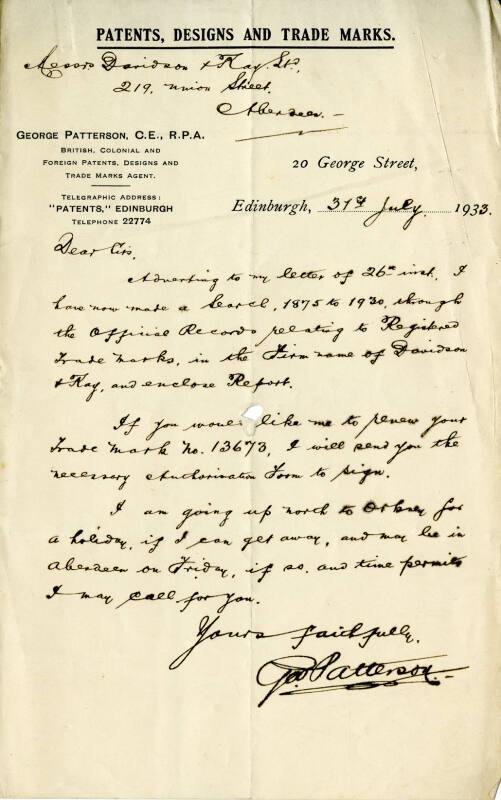 PATENTS, DESIGNS AND TRADE MARKS.
Messrs Davidson & Kay. Ld,
219, Union Street,
Aberdeen. —
GEORGE PATTERSON, C.E., R.P.A.
BRITISH, COLONIAL AND
FOREIGN PATENTS, DESIGNS AND
TRADE MARKS AGENT.
TELEGRAPHIC ADDRESS:
"PATENTS," EDINBURGH
TELEPHONE 22774
20 George Street,
Edinburgh, 31st July 1933.
Dear Sirs,
Adverting to my letter of 26th inst. I
have now made a Search, 1875 to 1930, through
the Official Records relating to Registered
Trade Marks, in the Firm name of Davidson
& Kay, and enclose Report.
If you would like me to renew your
Trade Mark No. 13673, I will send you the
necessary Authorisation Form to sign.
I am going up north to Orkney for
a holiday, if I can get away, and may be in
Aberdeen on Friday, if so, and time permits
I may call for you.
Yours faithfully,
Geo Patterson.